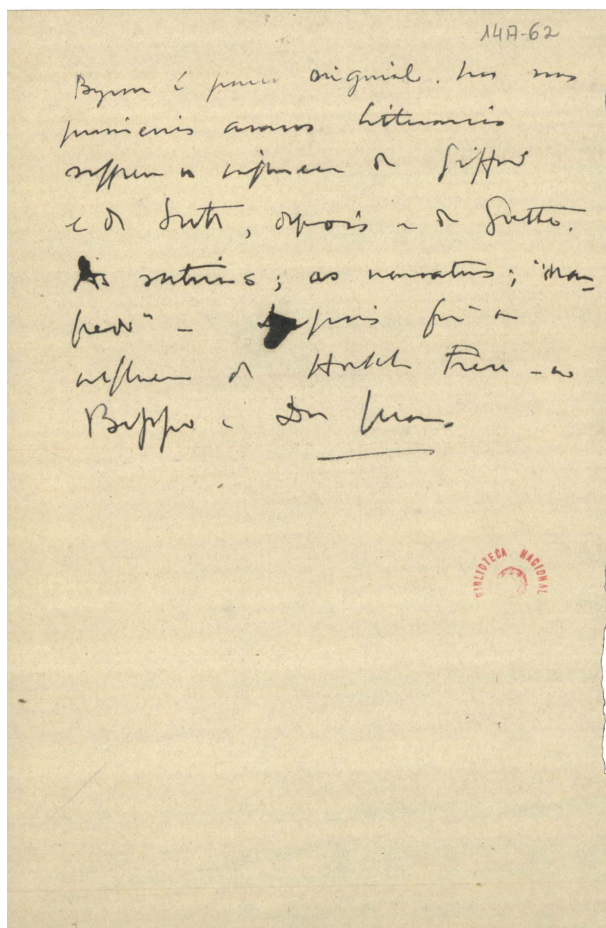 14A-62
Byron é pouco original. Nos seus
primeiros annos litterarios
soffreu a influencia de Gifford
e de Scott, depois a de Goethe.
As satiras; as narrativas; "Man-
fredo" – Depois foi a
influencia de Frere – no
Beppo e Don Juan.
BIBLIOTECA NACIONAL